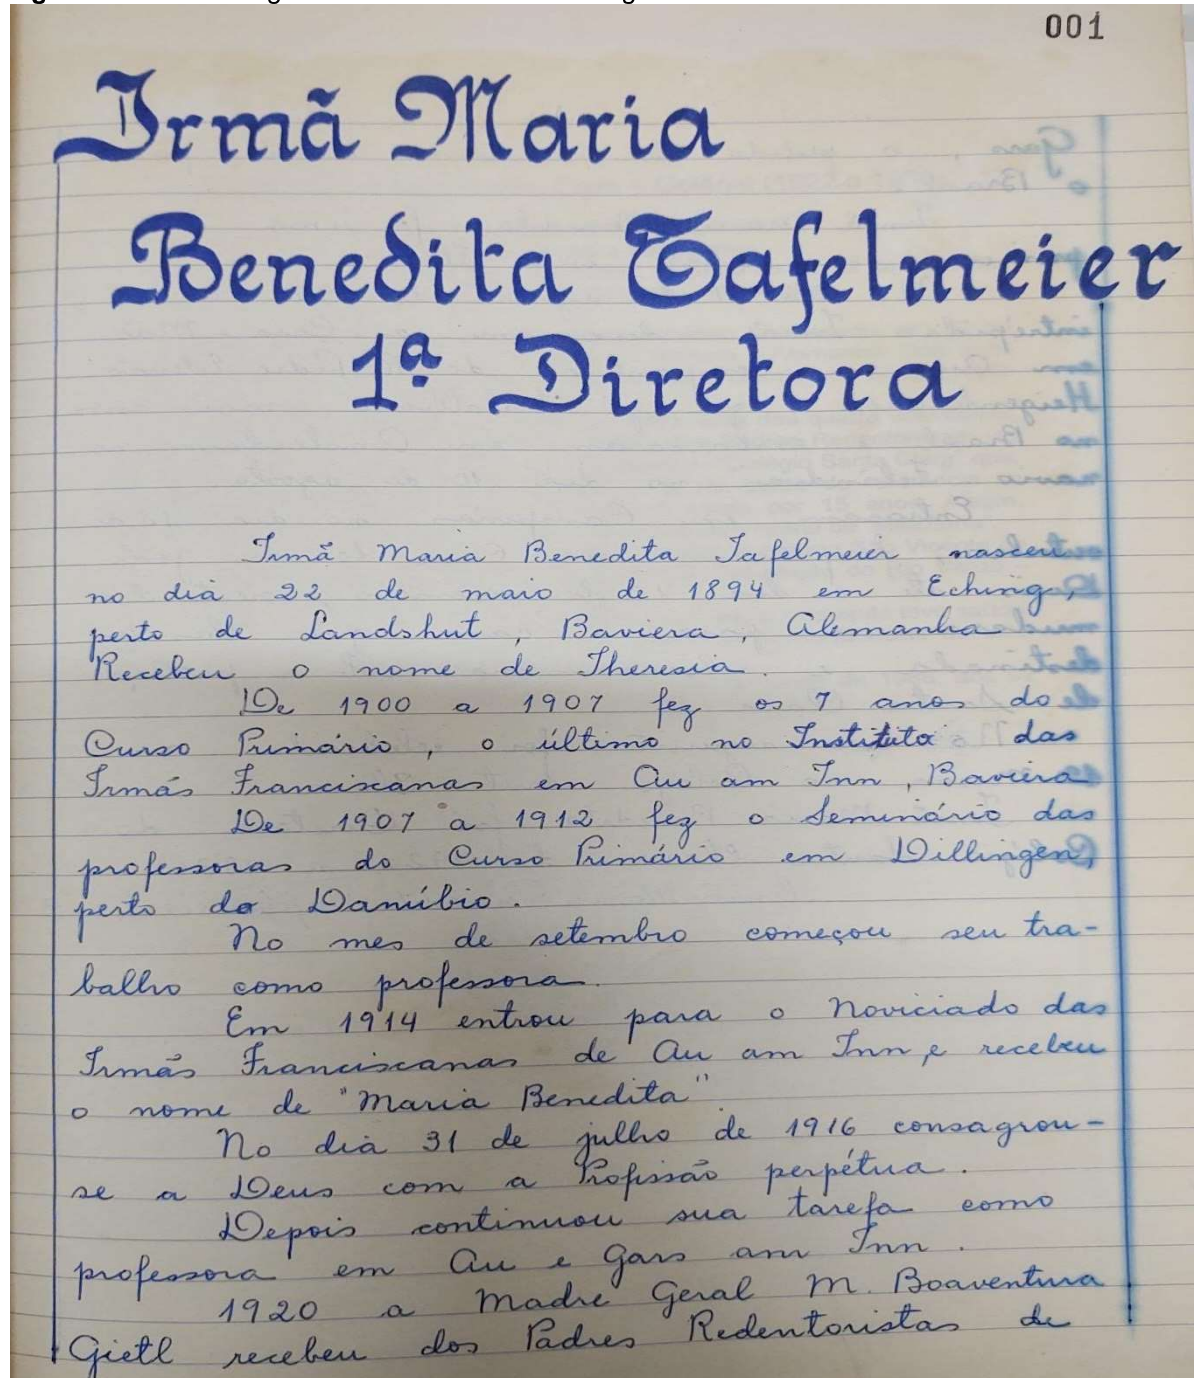 001
Irmã Maria
Benedita Tafelmeier
1ª Diretora
Irmã Maria Benedita Tafelmeier nasceu
no dia 22 de maio de 1894 em Eching,
perto de Landshut, Baviera, Alemanha
Recebeu o nome de Theresia.
De 1900 a 1907 fez os 7 anos do
Curso Primário, o último no Instituto das
Irmãs Franciscanas em Au am Inn, Baviera
De 1907 a 1912 fez o Seminário das
professoras do Curso Primário em Dillingen,
perto do Danúbio.
No mes de setembro começou seu tra-
balho como professora.
Em 1914 entrou para o Noviciado das
Irmãs Franciscanas de Au am Inn, e recebeu
o nome de "Maria Benedita"
No dia 31 de julho de 1916 consagrou-
se a Deus com a Profissão perpétua.
Depois continuou sua tarefa como
professora em Au e Gars am Inn.
1920 a Madre Geral M. Boaventura
Gietl recebeu dos Padres Redentoristas de